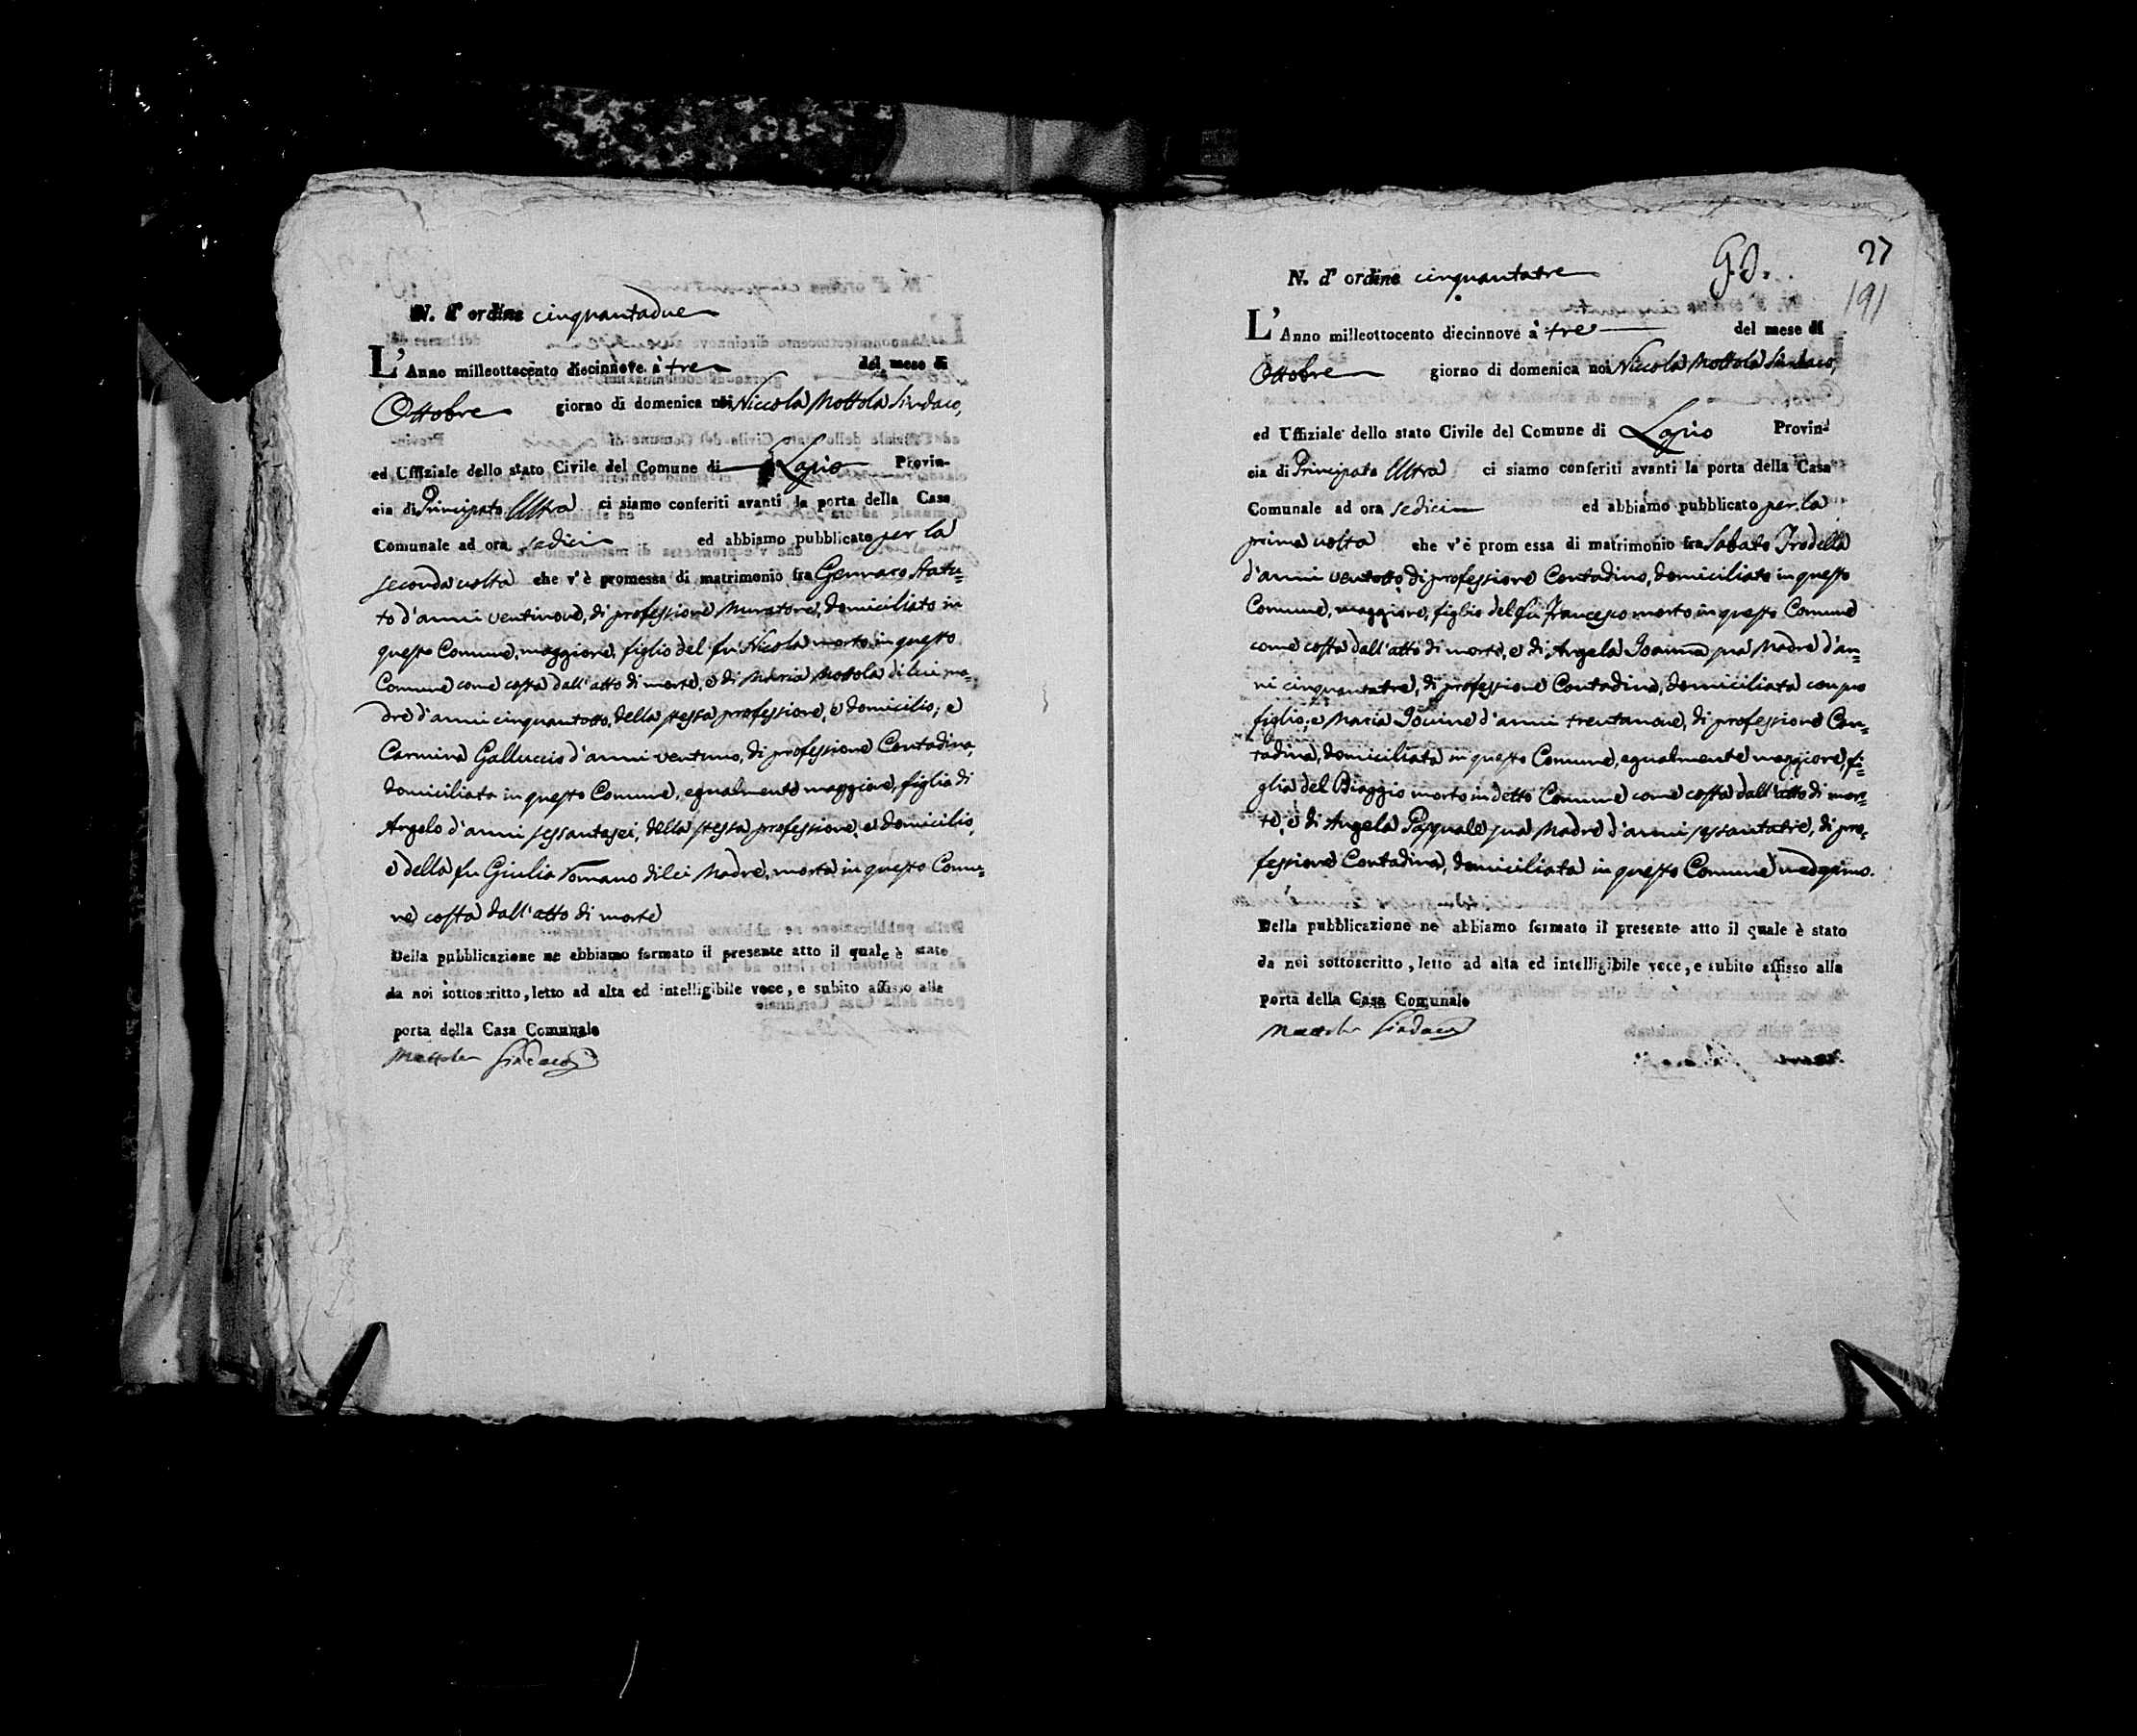 N. d'ordine cinquantadue
L'Anno milleottocento diecinnove à tre del mese di
Ottobre giorno di domenica noi Niccola Mottola Sindaco,
ed Uffiziale dello stato Civile del Comune di Lapio Provin-
cia di Principato Ultra ci siamo conferiti avanti la porta della Casa
Comunale ad ora sedici ed abbiamo pubblicato per la
seconda volta che v'è promessa di matrimonio fra Gennaro Statu=
to d'anni ventinove, di professione Muratore, domiciliato in
questo Comune, maggiore, figlio del fu Nicola morto in questo
Comune come costa dall'atto di morte, e di Maria Mottola di lui ma=
dre d'anni cinquantotto, della stessa professione, e domicilio; e
Carmina Galluccio d'anni ventuno, di professione Contadina,
domiciliata in questo Comune, egualmente maggiore, figlia di
Angelo d'anni sessantasei, della stessa professione, e domicilio,
e della fu Giulia Romano di lei Madre, morta in questo Comu=
ne, costa dall'atto di morte
Della pubblicazione ne abbiamo formato il presente atto il quale è stato
da noi sottoscritto, letto ad alta ed intelligibile voce, e subito affisso alla
porta della Casa Comunale
Mottola Sindaco
27
191
N. d'ordine cinquantatre
L'Anno milleottocento diecinnove à tre del mese di
Ottobre giorno di domenica noi Niccola Mottola Sindaco,
ed Uffiziale dello stato Civile del Comune di Lapio Provin-
cia di Principato Ultra ci siamo conferiti avanti la porta della Casa
Comunale ad ora sedici ed abbiamo pubblicato per la
prima volta che v'è promessa di matrimonio fra Sabato Trodella
d'anni ventotto, di professione Contadino, domiciliato in questo
Comune, maggiore, figlio del fu Francesco morto in questo Comune
come costa dall'atto di morte, e di Angela sua Madre d'an=
ni cinquantatre, di professione Contadina, domiciliata con suo
figlio; e Maria Iovine d'anni trentanove, di professione Con=
tadina, domiciliata in questo Comune, egualmente maggiore, fi=
glia del Biaggio morto in detto Comune come costa dall'atto di mor=
te, e di Angela Pasquale sua Madre d'anni sessantatre, di pro=
fessione Contadina, domiciliata in questo Comune medesimo.
Della pubblicazione ne abbiamo formato il presente atto il quale è stato
da noi sottoscritto, letto ad alta ed intelligibile voce, e subito affisso alla
porta della Casa Comunale
Mottola Sindaco